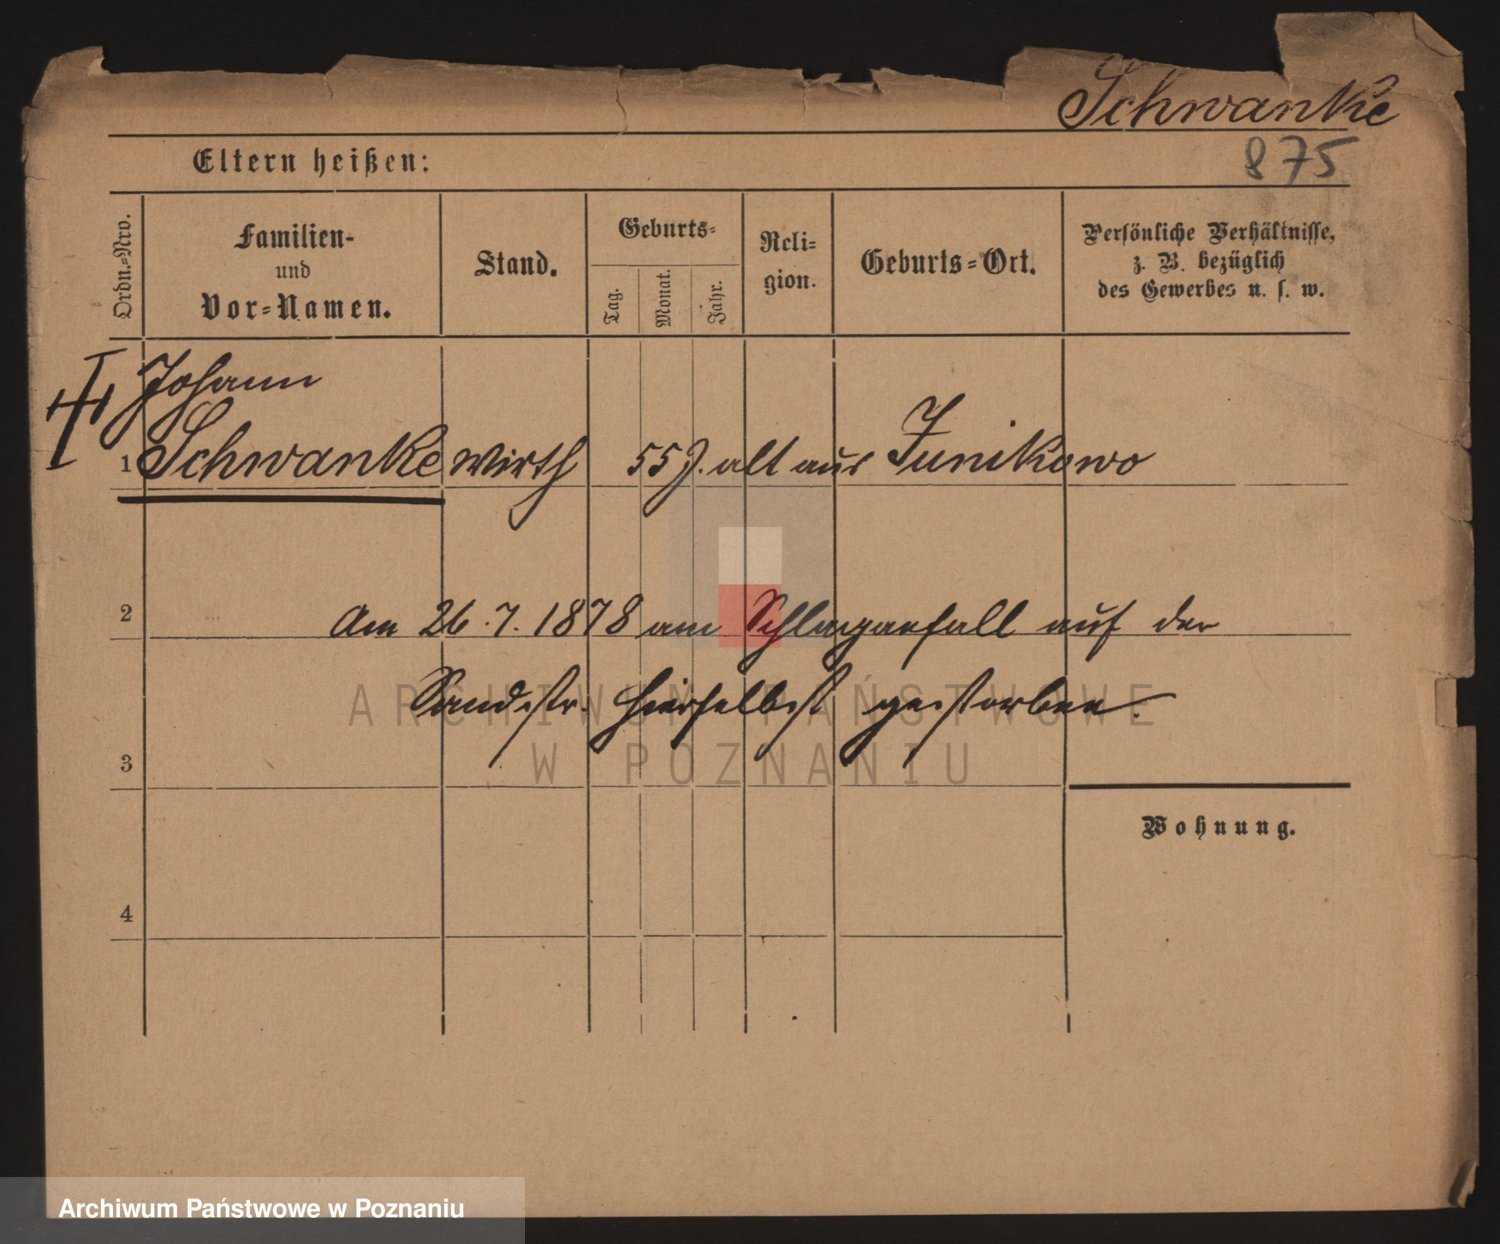 Schwanke
875
Eltern heißen:
Ordn.-Nro.
Familien-
und
Vor-Namen.
Stand.
Geburts-
Tag.
Monat.
Jahr.
Reli-
gion.
Geburts-Ort.
Persönliche Verhältnisse,
z. B. bezüglich
des Gewerbes u. s. w.
Johann
1 Schwanke Wirth 55 J. alt aus Junikowo
2
Am 26.7.1878 am Schlaganfall auf der
Sandstr. hierselbst gestorben.
ARCHIWUM PAŃSTWOWE
W POZNANIU
3
Wohnung.
4
Archiwum Państwowe w Poznaniu